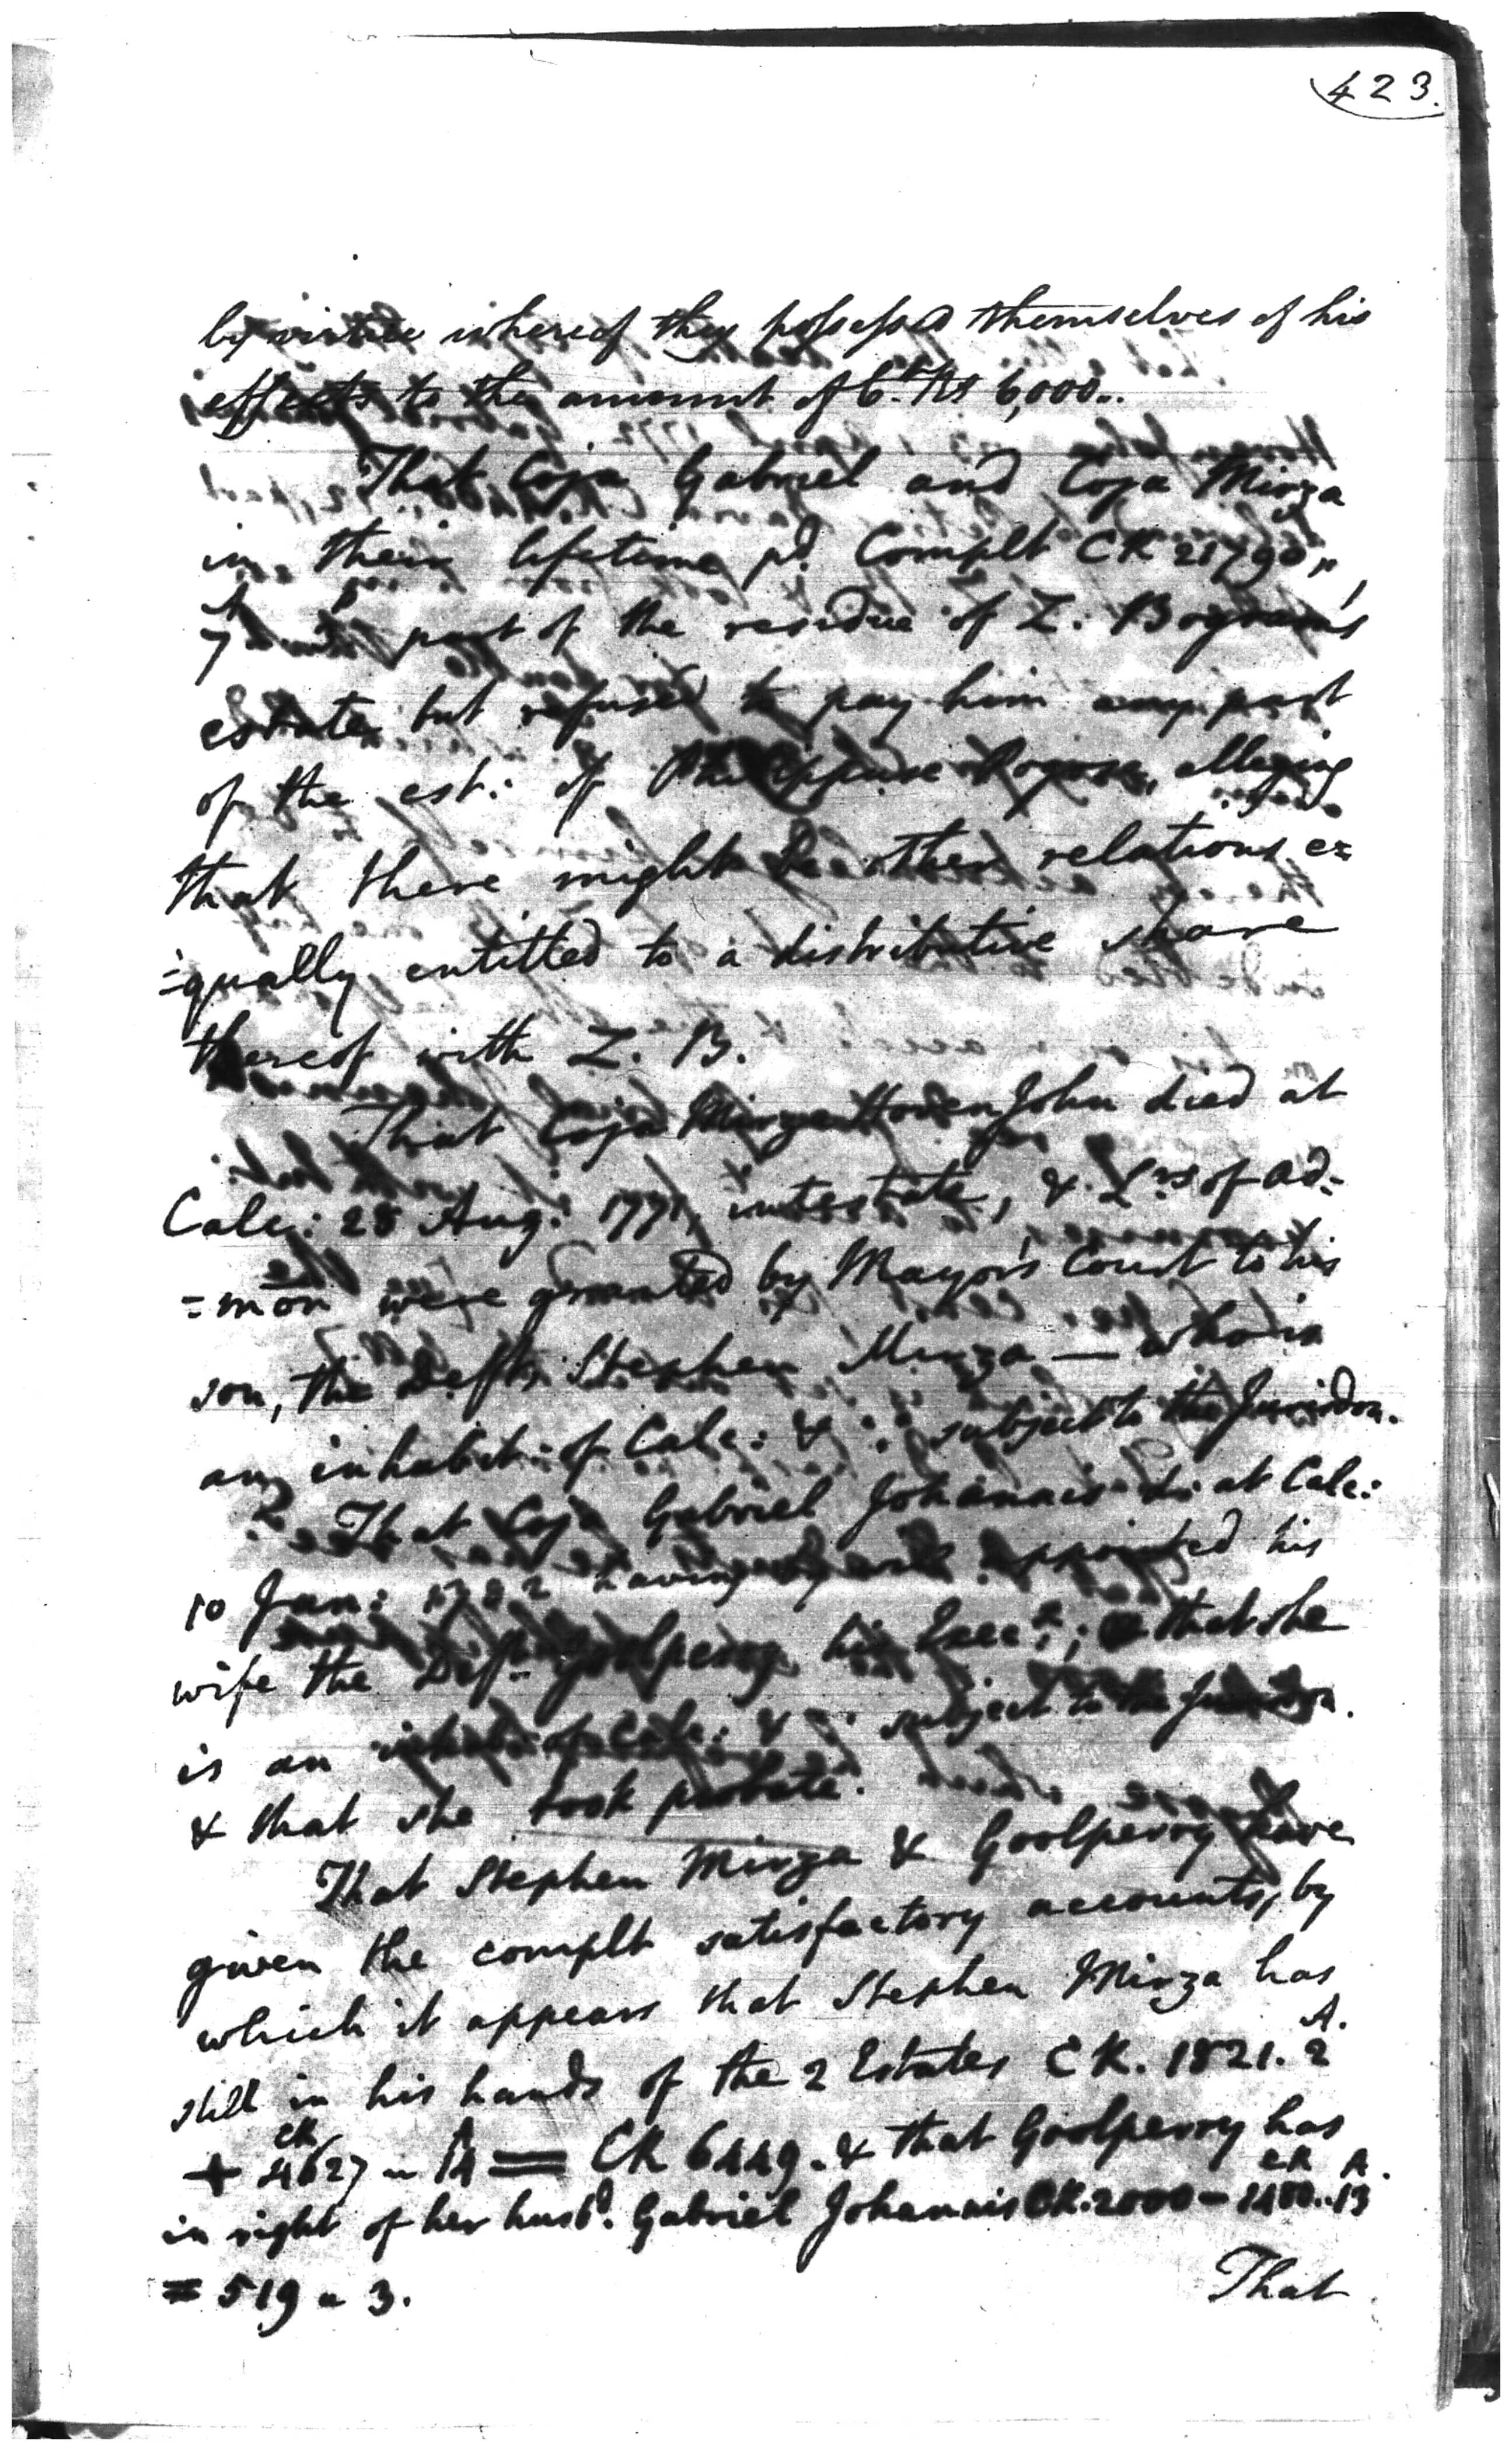 423.
by virtue whereof they possessed themselves of his
effects to the amount of Ct. Rs 6,000..
That Coja Gabriel and Coja Mirza
in their lifetime pd. Complt CR 21790,,
7 part of the residue of Z. Bogram's
estate but refused to pay him any part
of the est: of alleging
that there might be other relations e=
=qually entitled to a distributive share
thereof with Z. B.
That Coja Mirza John died at
Calc: 28 Aug: 1771, intestate, & Lrs of ad=
=mon were granted by Mayor's Court to his
son, the Deft, Stephen Mirza — who is
an inhabit: of Calc: & ∴ subject to the Jurisdon.
That Coja Gabriel Johannais d. at Calc:
10 Jan: 1782 having by appointed his
wife the Deft Goolperry his Execx; that she
is an inhabt: of Calc: & ∴ subject to the
& that she took probate.
That Stephen Mirza & Goolperry have
given the complt satisfactory accounts, by
which it appears that Stephen Mirza has
still in his hands of the 2 Estates CR. 1821. A. 2
+ CR 4627 ,, A 14 = CR 6449. & that Goolperry has
in right of her husbd. Gabriel Johannais CR. 2000 – CR 1480.. A. 13
= 519 ,, 3.
That